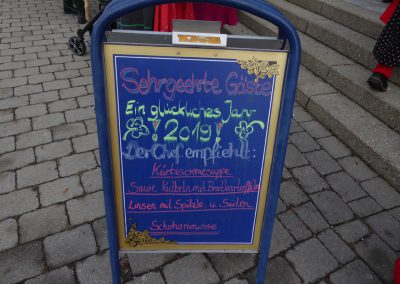 Sehrgeehrte Gäste
Ein glückliches Jahr
!2019!
Der Chef empfiehlt:
Kürbiscremesuppe
Saure Kutteln mit Bratkartoffeln
Linsen mit Spätzle u. Saiten
Schokomousse